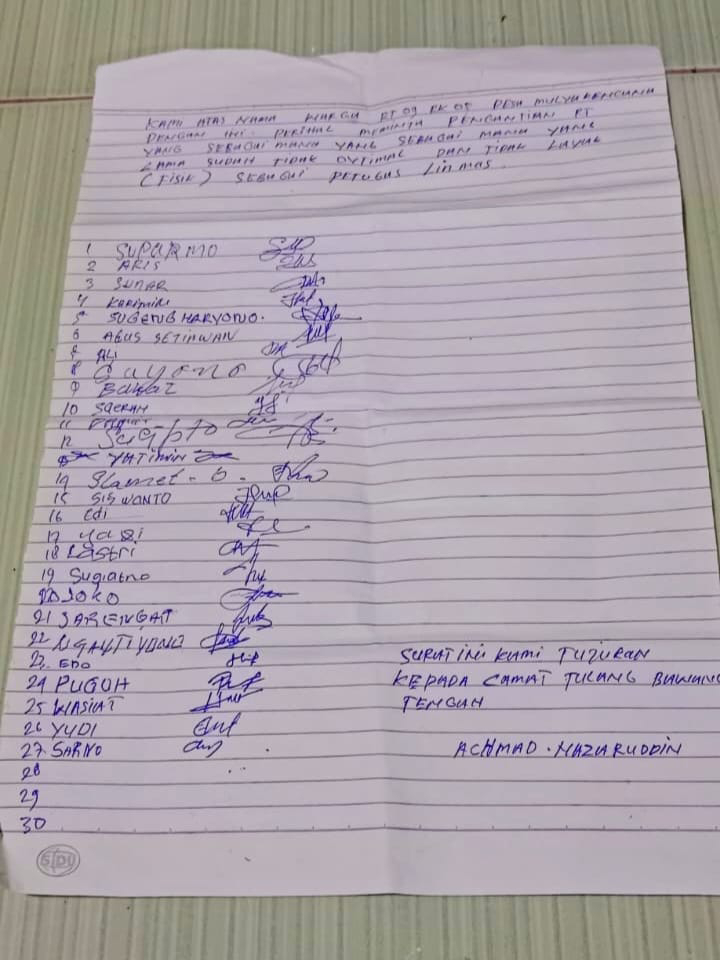 KAMI ATAS NAMA WARGA RT 09 RK 05 DESA MULYA KENCANA
DENGAN INI. PERIHAL MEMINTA PENGANTIAN RT
YANG SEBAGAI MANA YANG SEBAGAI MANA YANG
LAMA SUDAH TIDAK OPTIMAL DAN TIDAK LAYAK
(FISIK) SEBAGAI PETUGAS LINMAS.
1 SUPARMO
2 ARIS
3 SUNAR
4 KARIMIN
5 SUGENG HARYONO.
6 AGUS SETIAWAN
7 ALI
8 Gayono
9 Bakat
10 SAERAH
11
12 Sucipto
YATIMIN
14 Slamet - B -
15 SISWANTO
16 Edi
17 yasi
18 Lastri
19 Sugiatno
20 JOKO
21 SARENGAT
22 NGATIYONO
23. EDO
24 PUGOH
25 WASIAT
26 YUDI
27. SARNO
28
29
30
SURAT INI KAMI TUJUKAN
KEPADA CAMAT TULANG BAWANG
TENGAH
ACHMAD . NAZARUDDIN
SIDU